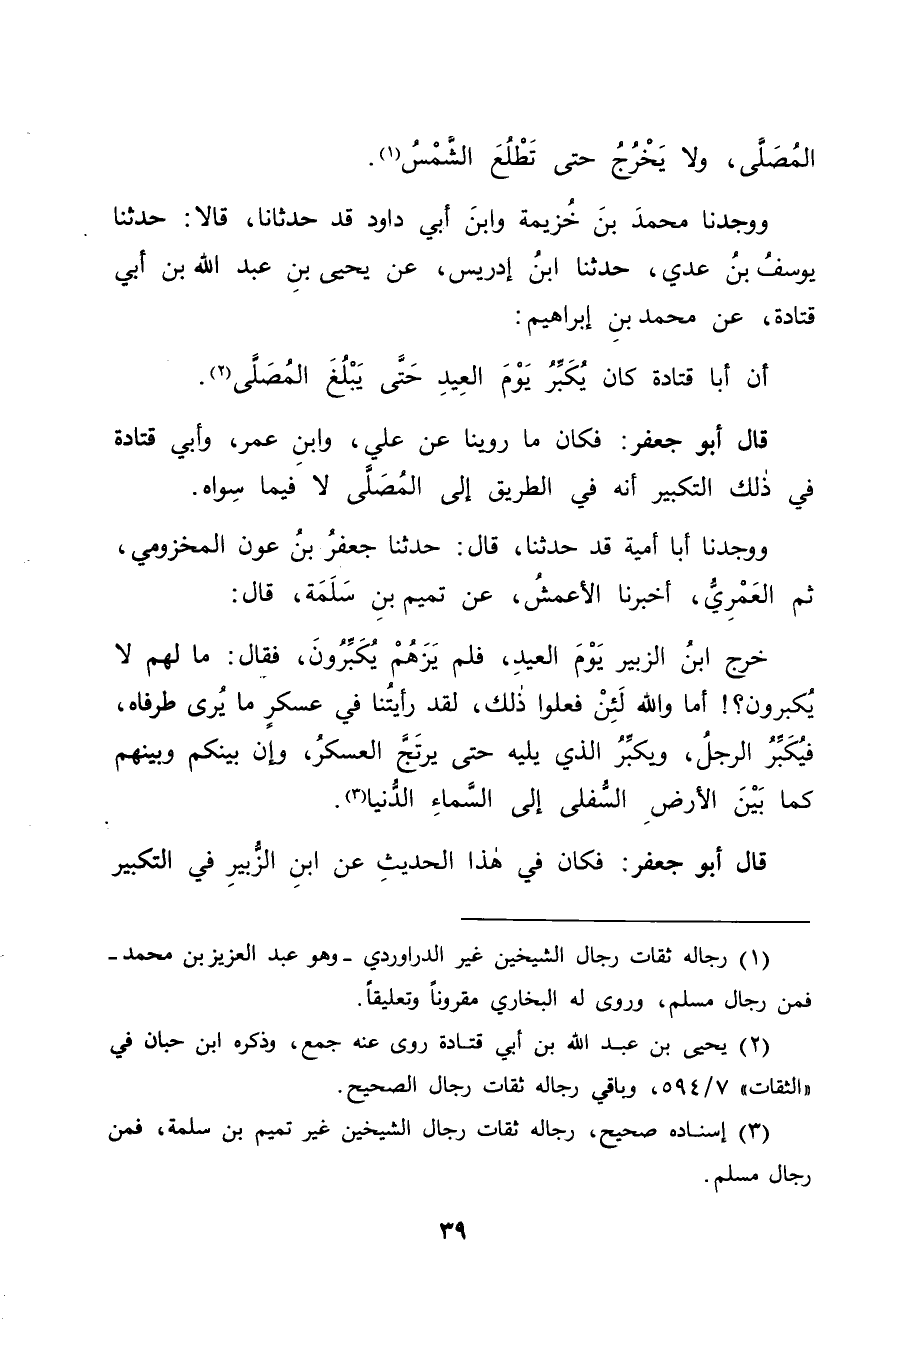 المُصَلَّى، ولا يَخْرُجُ حتى تَطْلُعَ الشَّمْسُ(١).
ووجدنا محمدَ بنَ خُزيمة وابنَ أبي داود قد حدثانا، قالا: حدثنا
يوسفُ بنُ عدي، حدثنا ابنُ إدريس، عن يحيى بنِ عبد الله بن أبي
قتادة، عن محمد بنِ إبراهيم:
أن أبا قتادة كان يُكَبِّرُ يَوْمَ العِيدِ حَتَّى يَبْلُغَ المُصَلَّى(٢).
قال أبو جعفر: فكان ما روينا عن علي، وابنِ عمر، وأبي قتادة
في ذٰلك التكبير أنه في الطريق إلى المُصَلَّى لا فيما سِواه.
ووجدنا أبا أمية قد حدثنا، قال: حدثنا جعفرُ بنُ عون المخزومي،
ثم العَمْرِيُّ، أخبرنا الأعمشُ، عن تميم بنِ سَلَمَة، قال:
خرج ابنُ الزبير يَوْمَ العيدِ، فلم يَرَهُمْ يُكَبِّرُونَ، فقال: ما لهم لا
يُكبرون؟! أما والله لَئِنْ فعلوا ذٰلك، لقد رأيتُنا في عسكرٍ ما يُرى طرفاه،
فيُكَبِّرُ الرجلُ، ويكبِّرُ الذي يليه حتى يرتَجَّ العسكرُ، وإن بينكم وبينهم
كما بَيْنَ الأرضِ السُّفلى إلى السَّماءِ الدُّنيا(٣).
قال أبو جعفر: فكان في هٰذا الحديثِ عن ابنِ الزُّبيرِ في التكبير
(١) رجاله ثقات رجال الشيخين غير الدراوردي ـ وهو عبد العزيز بن محمد ـ
فمن رجال مسلم، وروى له البخاري مقروناً وتعليقاً.
(٢) يحيى بن عبد الله بن أبي قتادة روى عنه جمع، وذكره ابن حبان في
«الثقات» ٥٩٤/٧، وباقي رجاله ثقات رجال الصحيح.
(٣) إسناده صحيح، رجاله ثقات رجال الشيخين غير تميم بن سلمة، فمن
رجال مسلم.
٣٩